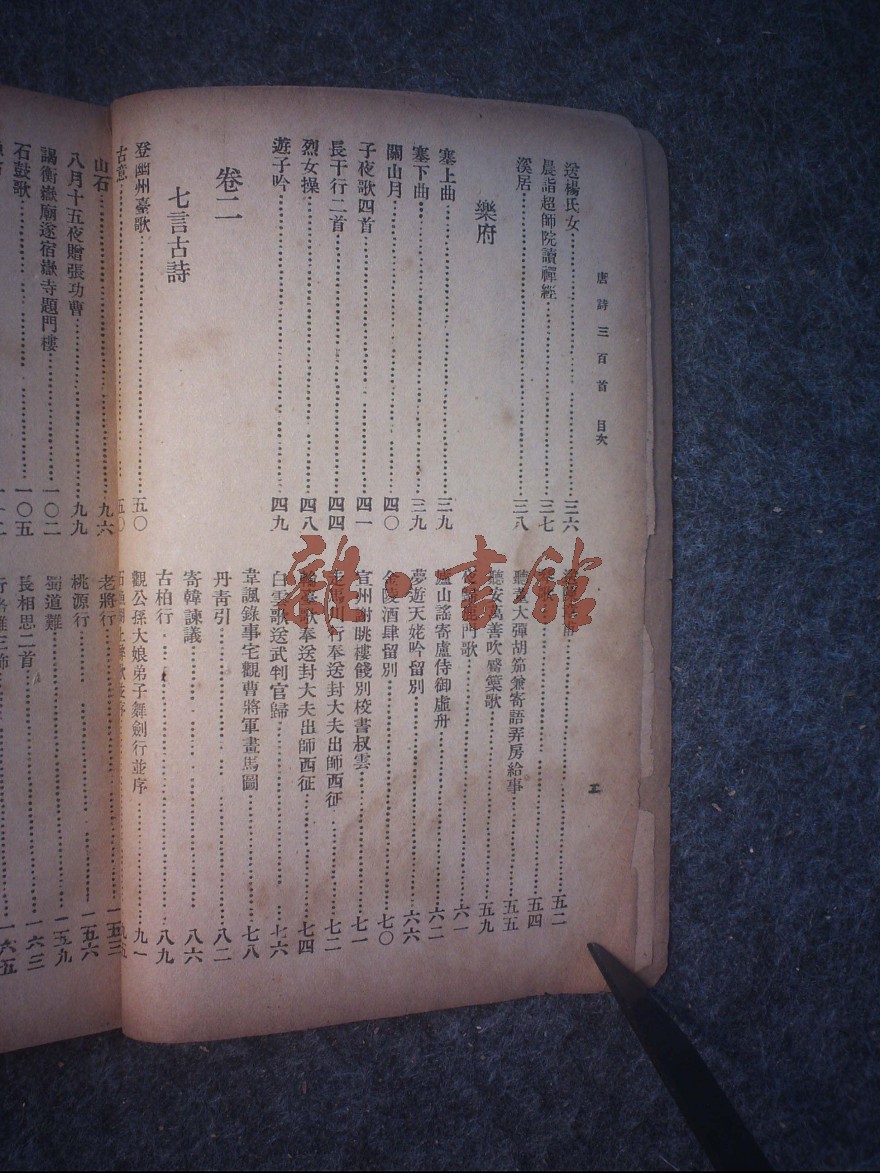 唐詩三百首 目次
送楊氏女 三六
晨詣超師院讀禪經 三七
溪居 三八
樂府
塞上曲 三九
塞下曲 三九
關山月 四〇
子夜歌四首 四一
長干行二首 四四
烈女操 四八
遊子吟 四九
卷二
七言古詩
登幽州臺歌 五〇
古意 五〇
五二
五四
聽董大彈胡笳兼寄語弄房給事 五五
聽安萬善吹觱篥歌 五九
歌 六一
廬山謠寄盧侍御虛舟 六二
夢遊天姥吟留別 六六
金陵酒肆留別 七〇
宣州謝朓樓餞別校書叔雲 七一
行奉送封大夫出師西征 七二
歌奉送封大夫出師西征 七四
白雲歌送武判官歸 七六
韋諷錄事宅觀曹將軍畫馬圖 七八
丹青引 八二
寄韓諫議 八六
古柏行 八九
觀公孫大娘弟子舞劍行並序 九一
山石 九六
八月十五夜贈張功曹 九九
謁衡嶽廟遂宿嶽寺題門樓 一〇二
石鼓歌 一〇五
老將行 一五三
桃源行 一五六
蜀道難 一五九
長相思二首 一六三
一六五
雜·書館